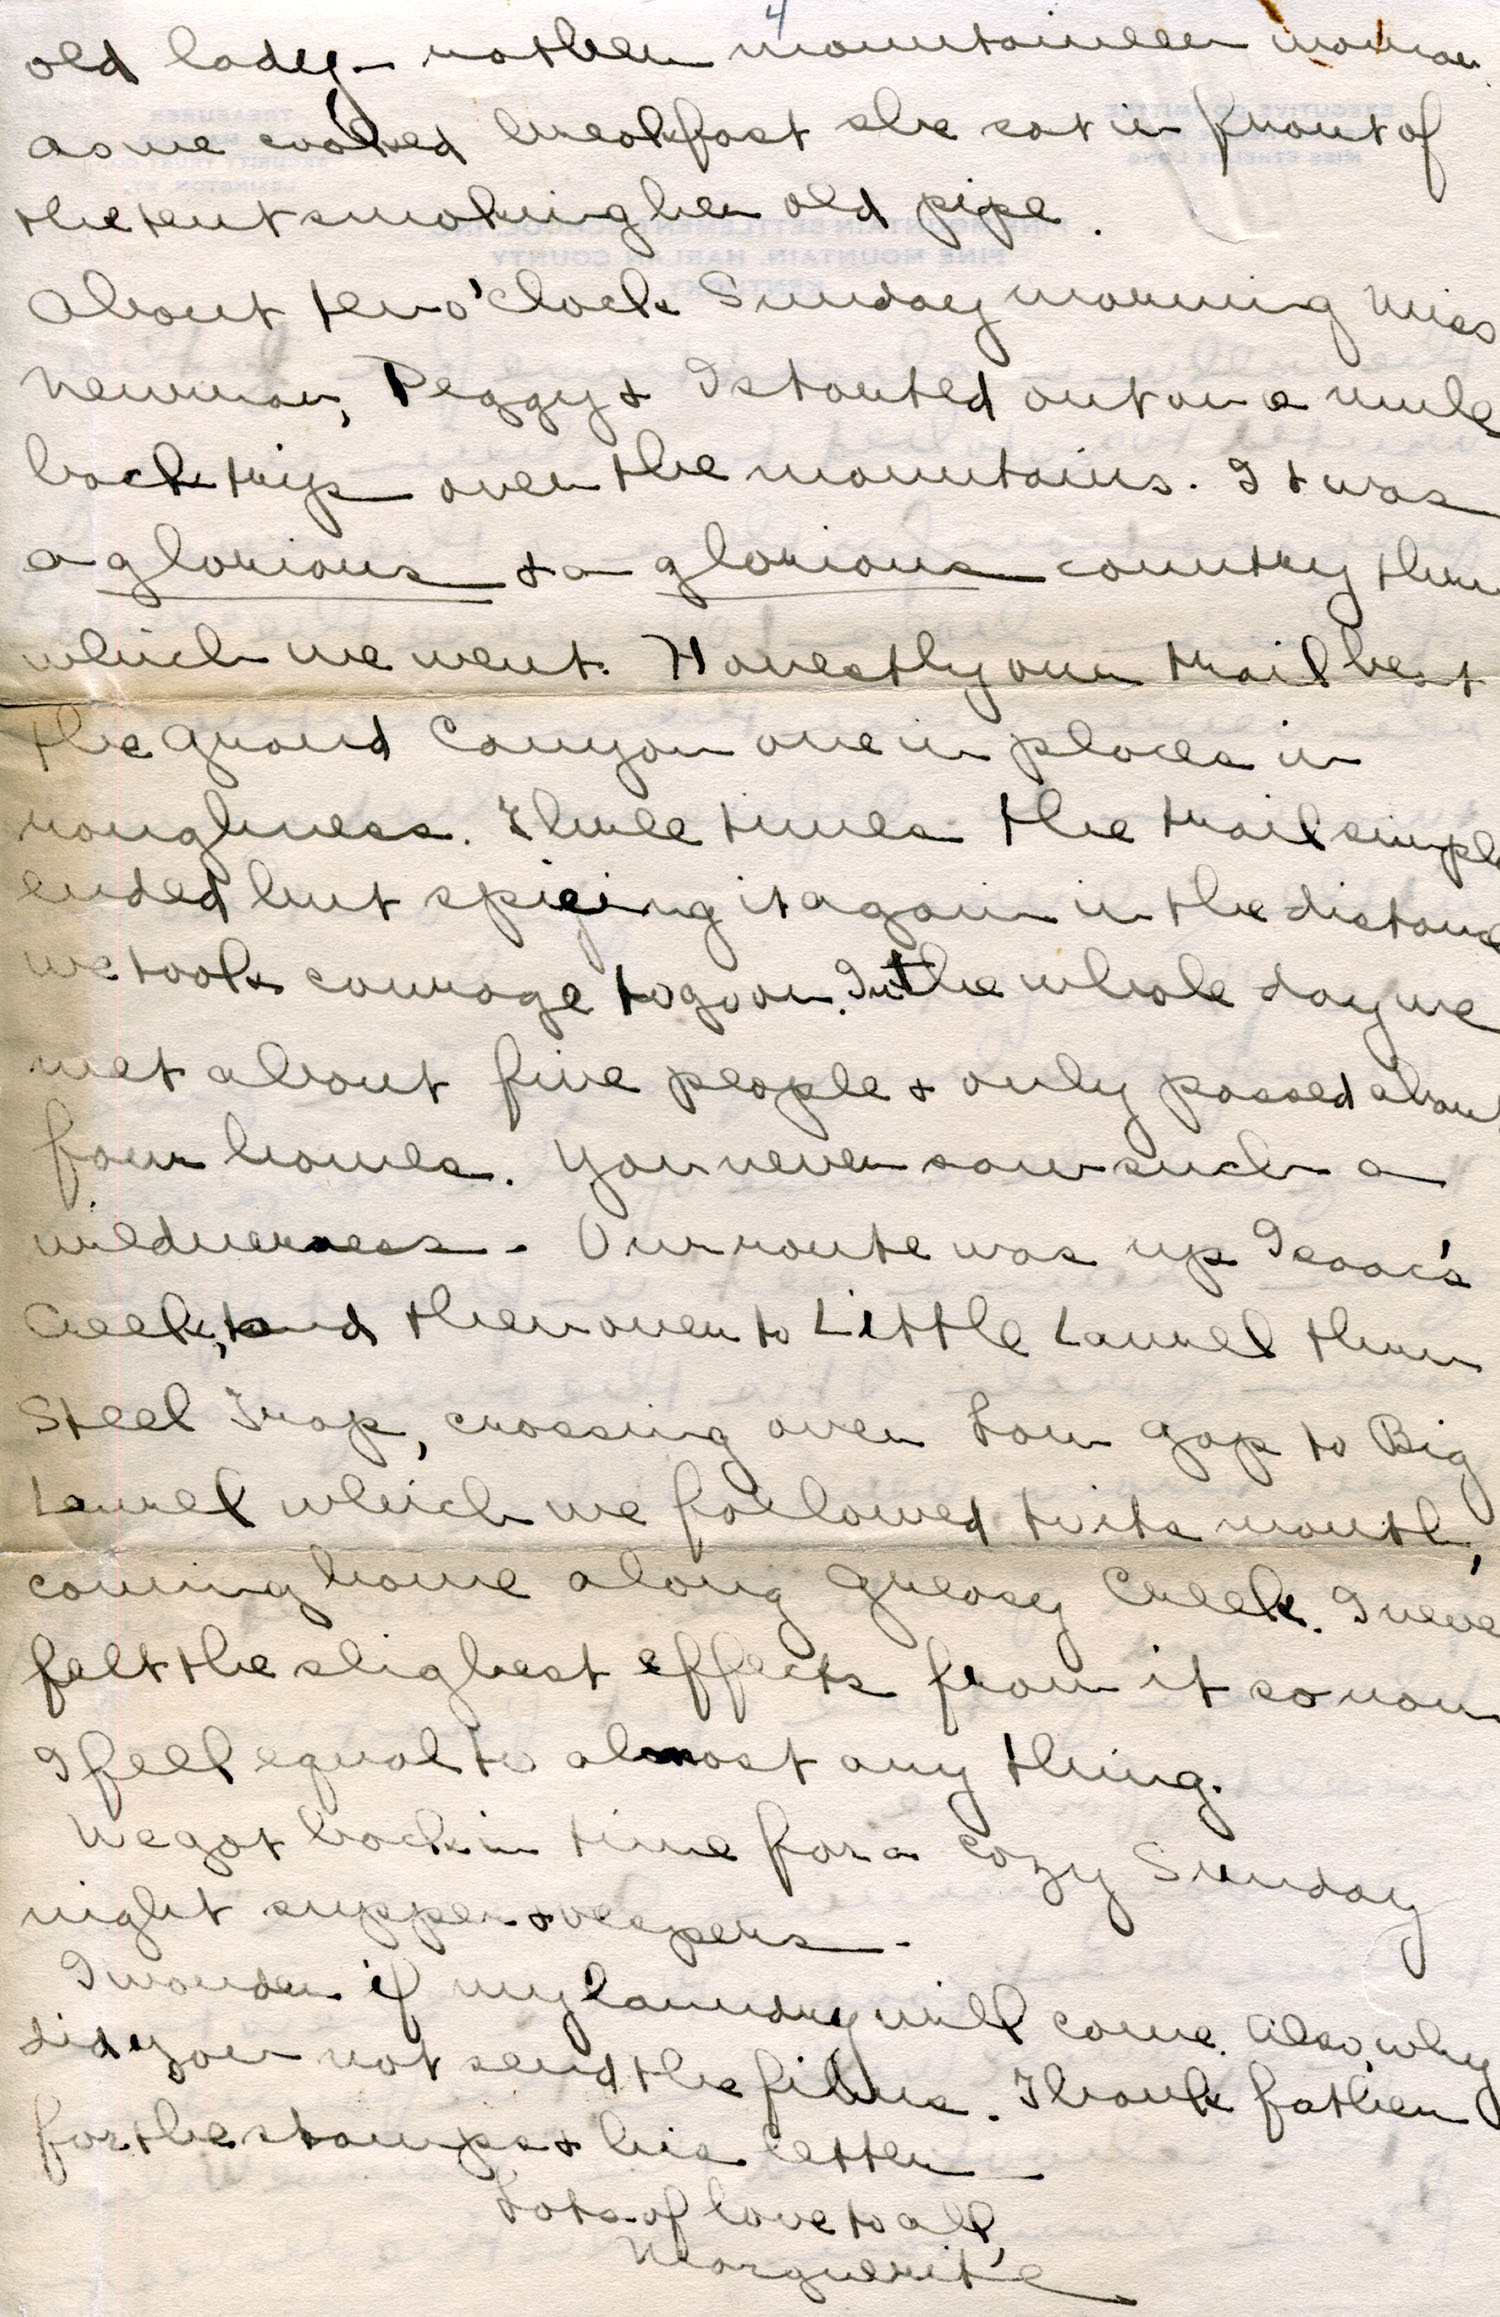 4
old lady - rather mountaineer woman.
as we cooked breakfast she sat in front of
the tent smoking her old pipe.
About ten o'clock Sunday morning Miss
Newman, Peggy & I started out on a mule
back trip over the mountains. It was
a glorious & a glorious country thru
which we went. Honestly our trail beat
the Grand Canyon one in places in
roughness. Three times the trail simply
ended but spieing it again in the distance
we took courage to go on. In the whole day we
met about five people & only passed about
four homes. You never saw such a
wilderness - Our route was up Isaac's
Creek, and then over to Little Laurel thru
Steel Trap, crossing over Low Gap to Big
Laurel which we followed to its mouth,
coming home along Greasy Creek. I never
felt the slighest effects from it so now
I feel equal to almost any thing.
We got back in time for a cozy Sunday
night supper & vespers -
I wonder if my laundry will come. Also, why
did you not send the films. Thank father
for the stamps & his letter -
Lots of love to all,
Marguerite